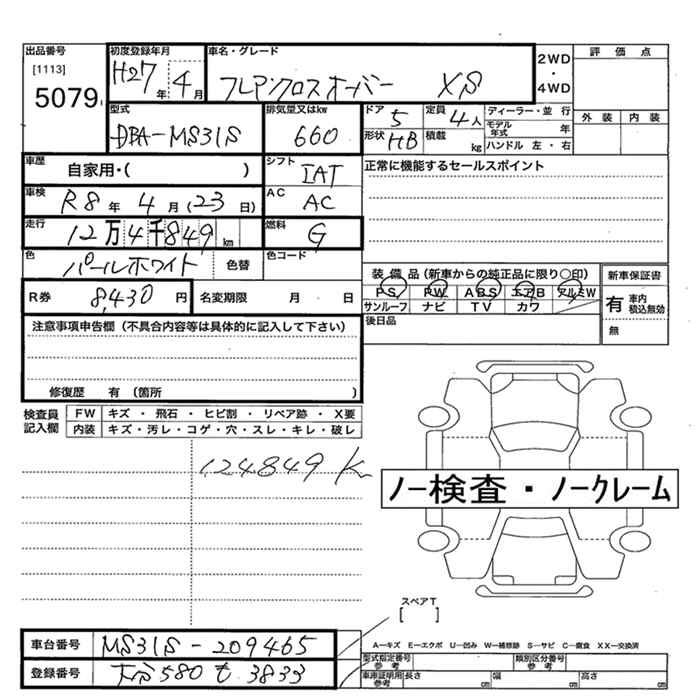 出品番号
[1113]
5079
初度登録年月
H27年 4月
車名・グレード
フレアクロスオーバー XS
2WD
・
4WD
評価点
外装 内装
型式
DBA-MS31S
排気量又はkw
660
ドア 5
形状 HB
定員 4人
積載 kg
ディーラー・並行
モデル年式 年
ハンドル 左・右
車歴
自家用・( )
シフト
IAT
正常に機能するセールスポイント
車検
R8年 4月(23日)
AC
AC
走行
12万4千849km
燃料
G
色
パールホワイト
色替
色コード
装備品(新車からの純正品に限り○印)
PS PW ABS エアB アルミW
サンルーフ ナビ TV カワ
後日品
新車保証書
有 車内積込無効
無
R券 8,430円
名変期限 月 日
注意事項申告欄(不具合内容等は具体的に記入して下さい)
修復歴 有(箇所 )
検査員記入欄
FW キズ・飛石・ヒビ割・リペア跡・X要
内装 キズ・汚レ・コゲ・穴・スレ・キレ・破レ
124849K
ノー検査・ノークレーム
スペアT
[ ]
車台番号 MS31S-209465
登録番号 大分580も3833
A−キズ E−エクボ U−凹み W−補修跡 S−サビ C−腐食 XX−交換済
型式指定番号参考
類別区分番号参考
車庫証明用参考 長さ cm 幅 cm 高さ cm